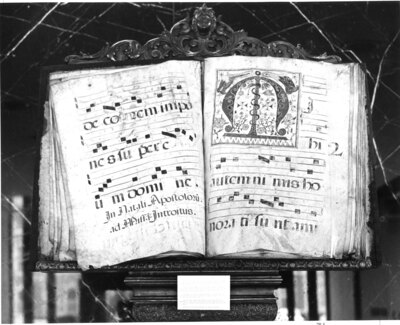 de co rem im po
ne s su per e
u m domi ne.
In Natali Apostolorũ
ad Missã Introitus.
M i
hi
autem ni mis ho
nora ti su nt ami